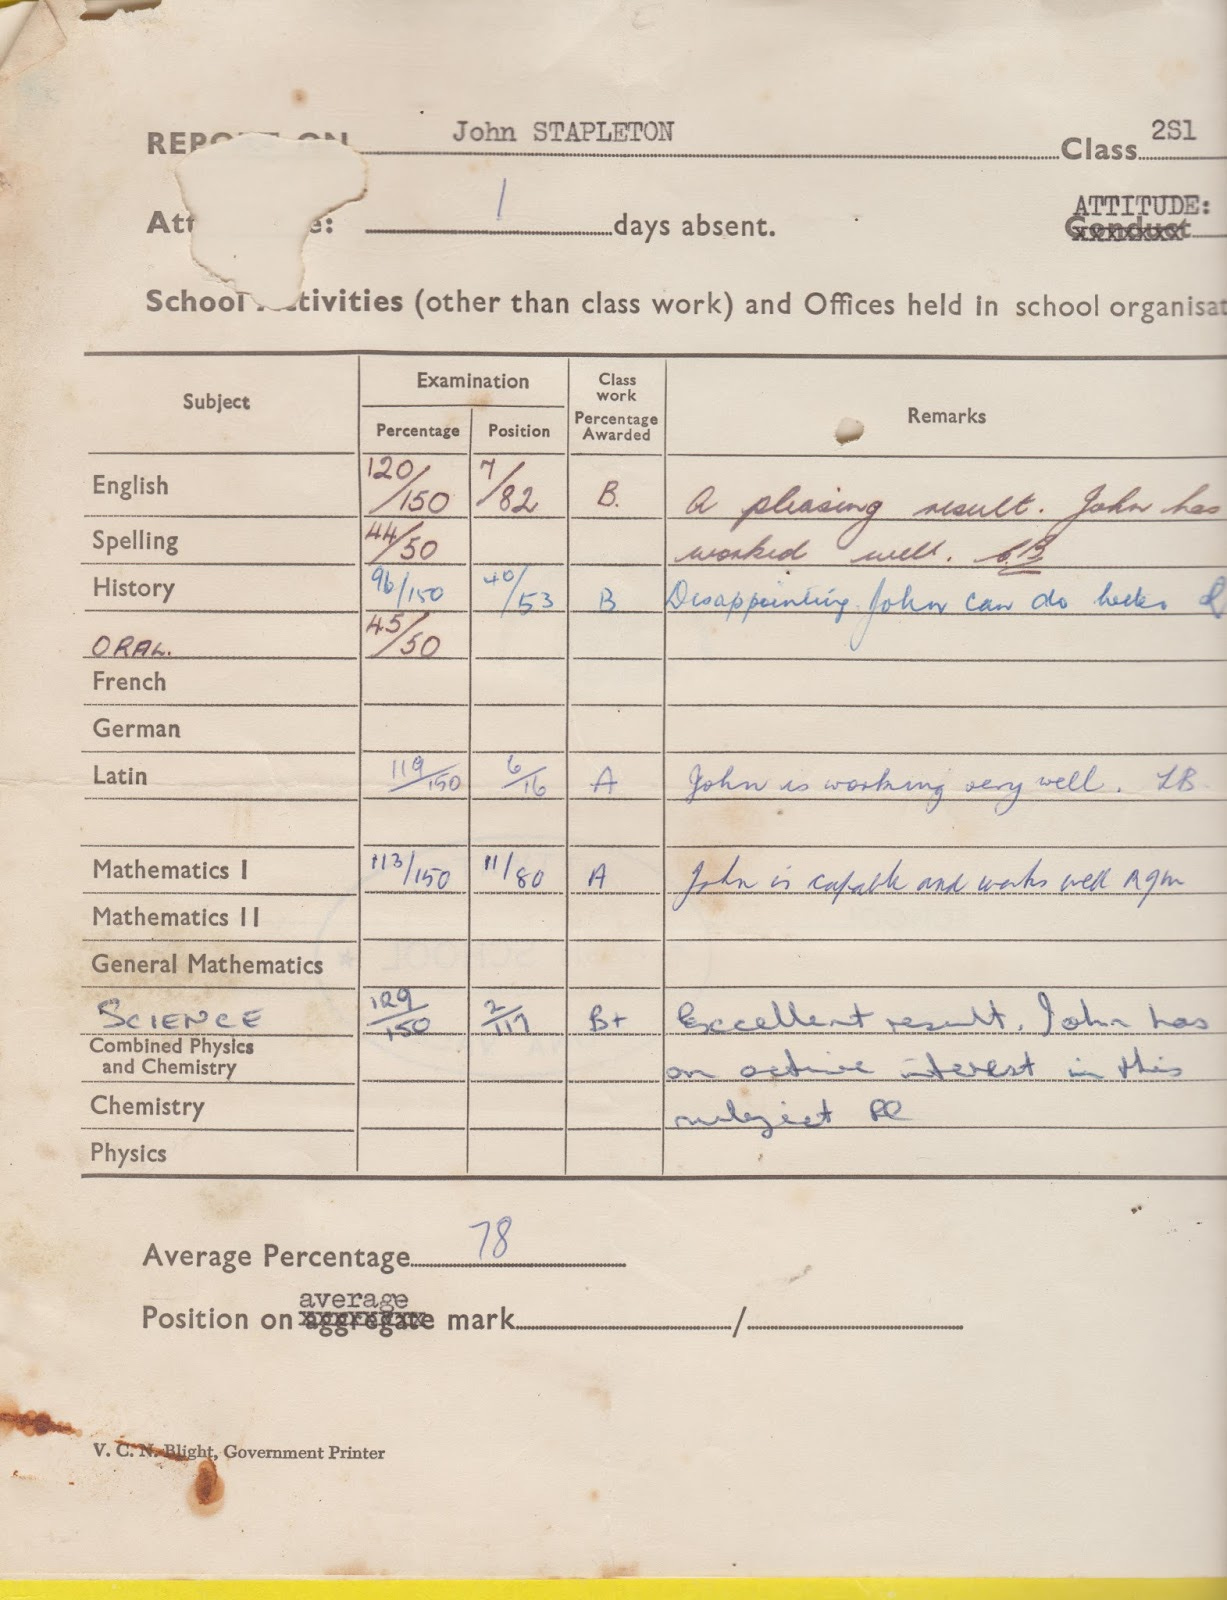 REPORT ON John STAPLETON Class 2S1
Att e: 1 days absent. ATTITUDE:
Conduct
School Activities (other than class work) and Offices held in school organisat
Subject Examination Class work Percentage Awarded Remarks
Percentage Position
English 120/150 7/82 B. A pleasing result. John has
Spelling 44/50 worked well.
History 96/150 40/53 B Disappointing. John can do
ORAL. 45/50
French
German
Latin 119/150 6/16 A John is working very well. LB.
Mathematics I 113/150 11/80 A John is capable and works well RGM
Mathematics II
General Mathematics
SCIENCE 129/150 2/117 B+ Excellent result. John has
Combined Physics
and Chemistry an active interest in this
Chemistry subject
Physics
Average Percentage 78
average
Position on aggregate mark /
V. C. N. Blight, Government Printer